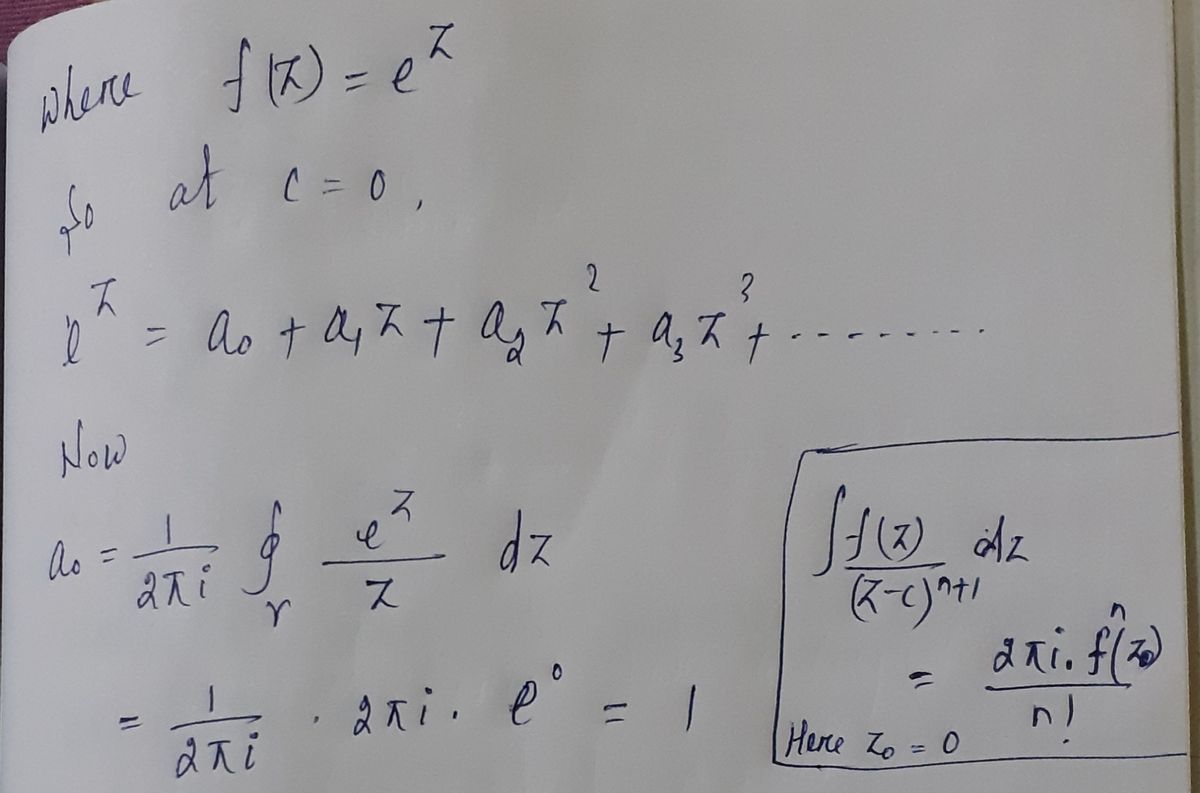 where f(z) = e^z
So at c = 0,
e^z = a₀ + a₁z + a₂z² + a₃z³ + ---------
Now
a₀ = 1/2πi ∮_γ e^z/z dz
= 1/2πi · 2πi · e⁰ = 1
∫ f(z)/(z-c)^(n+1) dz
= 2πi. fⁿ(z₀)/n!
Here z₀ = 0